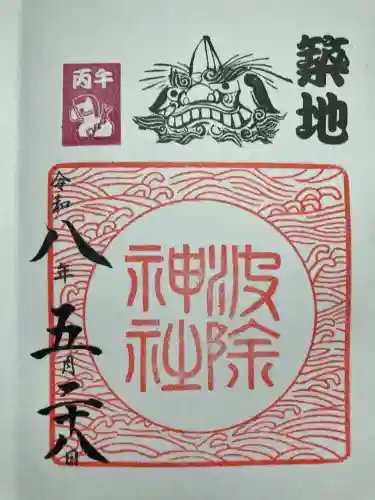 築地
丙午
波除
神社
令和八年五月二十八日